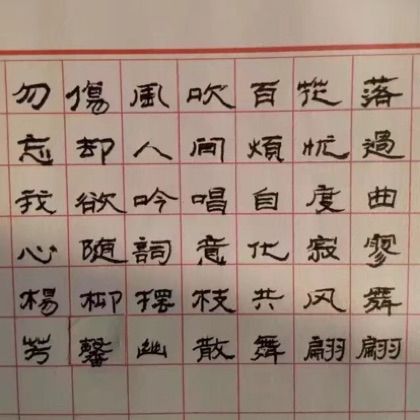 勿傷風吹百花落
忘却人间煩忧過
我欲吟唱自度曲
心随詞意化寂寥
楊柳摆枝共风舞
芳馨幽散舞翩翩